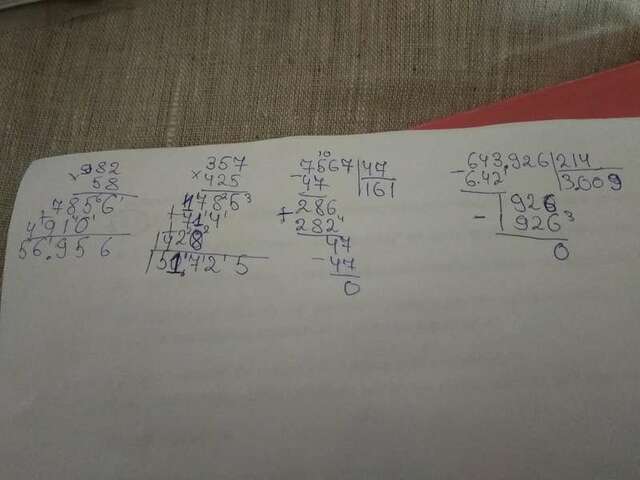 982
× 58
+ 7856
4910
56.956
357
× 425
1785
+ 714
1428
151.725
7567 | 47
- 47 | 161
286
282
47
- 47
0
643.926 | 214
- 642 | 3.009
1926
- 1926
0